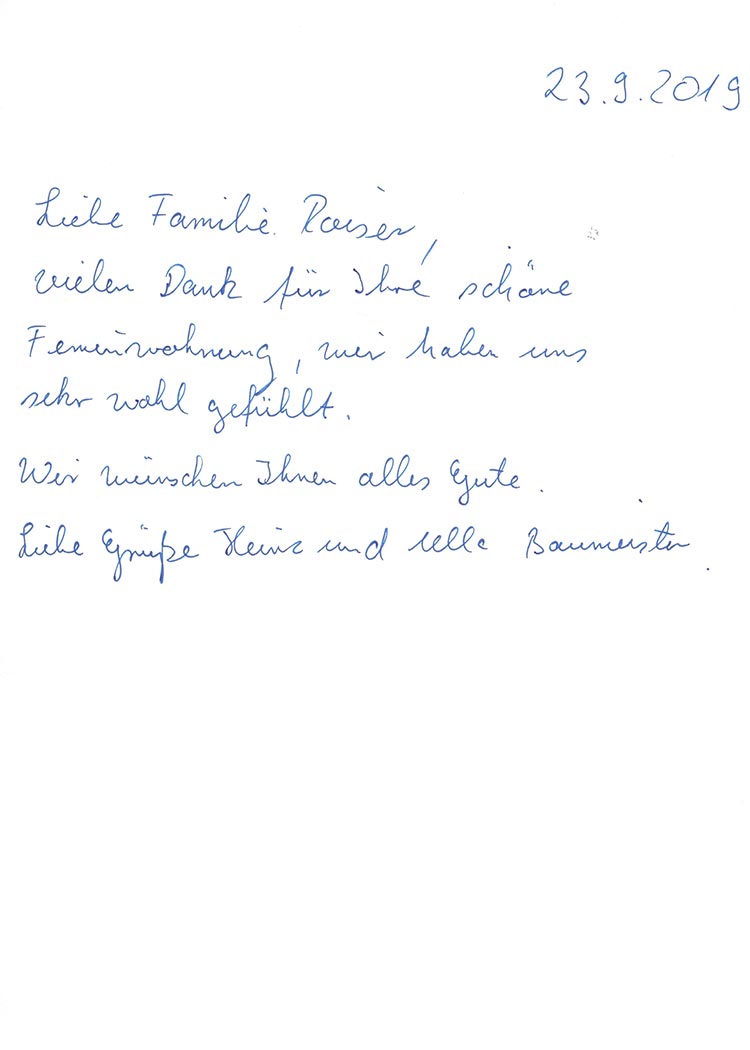 23.9.2019
Liebe Familie Raiser,
vielen Dank für Ihre schöne
Ferienwohnung, wir haben uns
sehr wohl gefühlt.
Wir wünschen Ihnen alles Gute.
Liebe Grüße Heinz und Ulla Baumeister